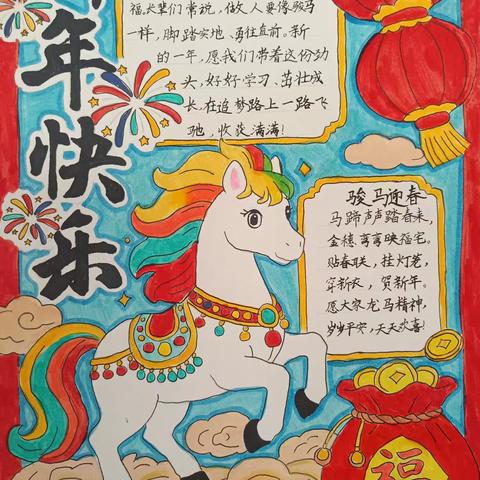 年快乐
福。长辈们常说，做人要像骏马
一样，脚踏实地、勇往直前。新
的一年，愿我们带着这份劲
头，好好学习、茁壮成
长，在追梦路上一路飞
驰，收获满满！
骏马迎春
马蹄声声踏春来，
金穗弯弯映福宅。
贴春联，挂灯笼，
穿新衣，贺新年。
愿大家龙马精神，
岁岁平安，天天欢喜！
福